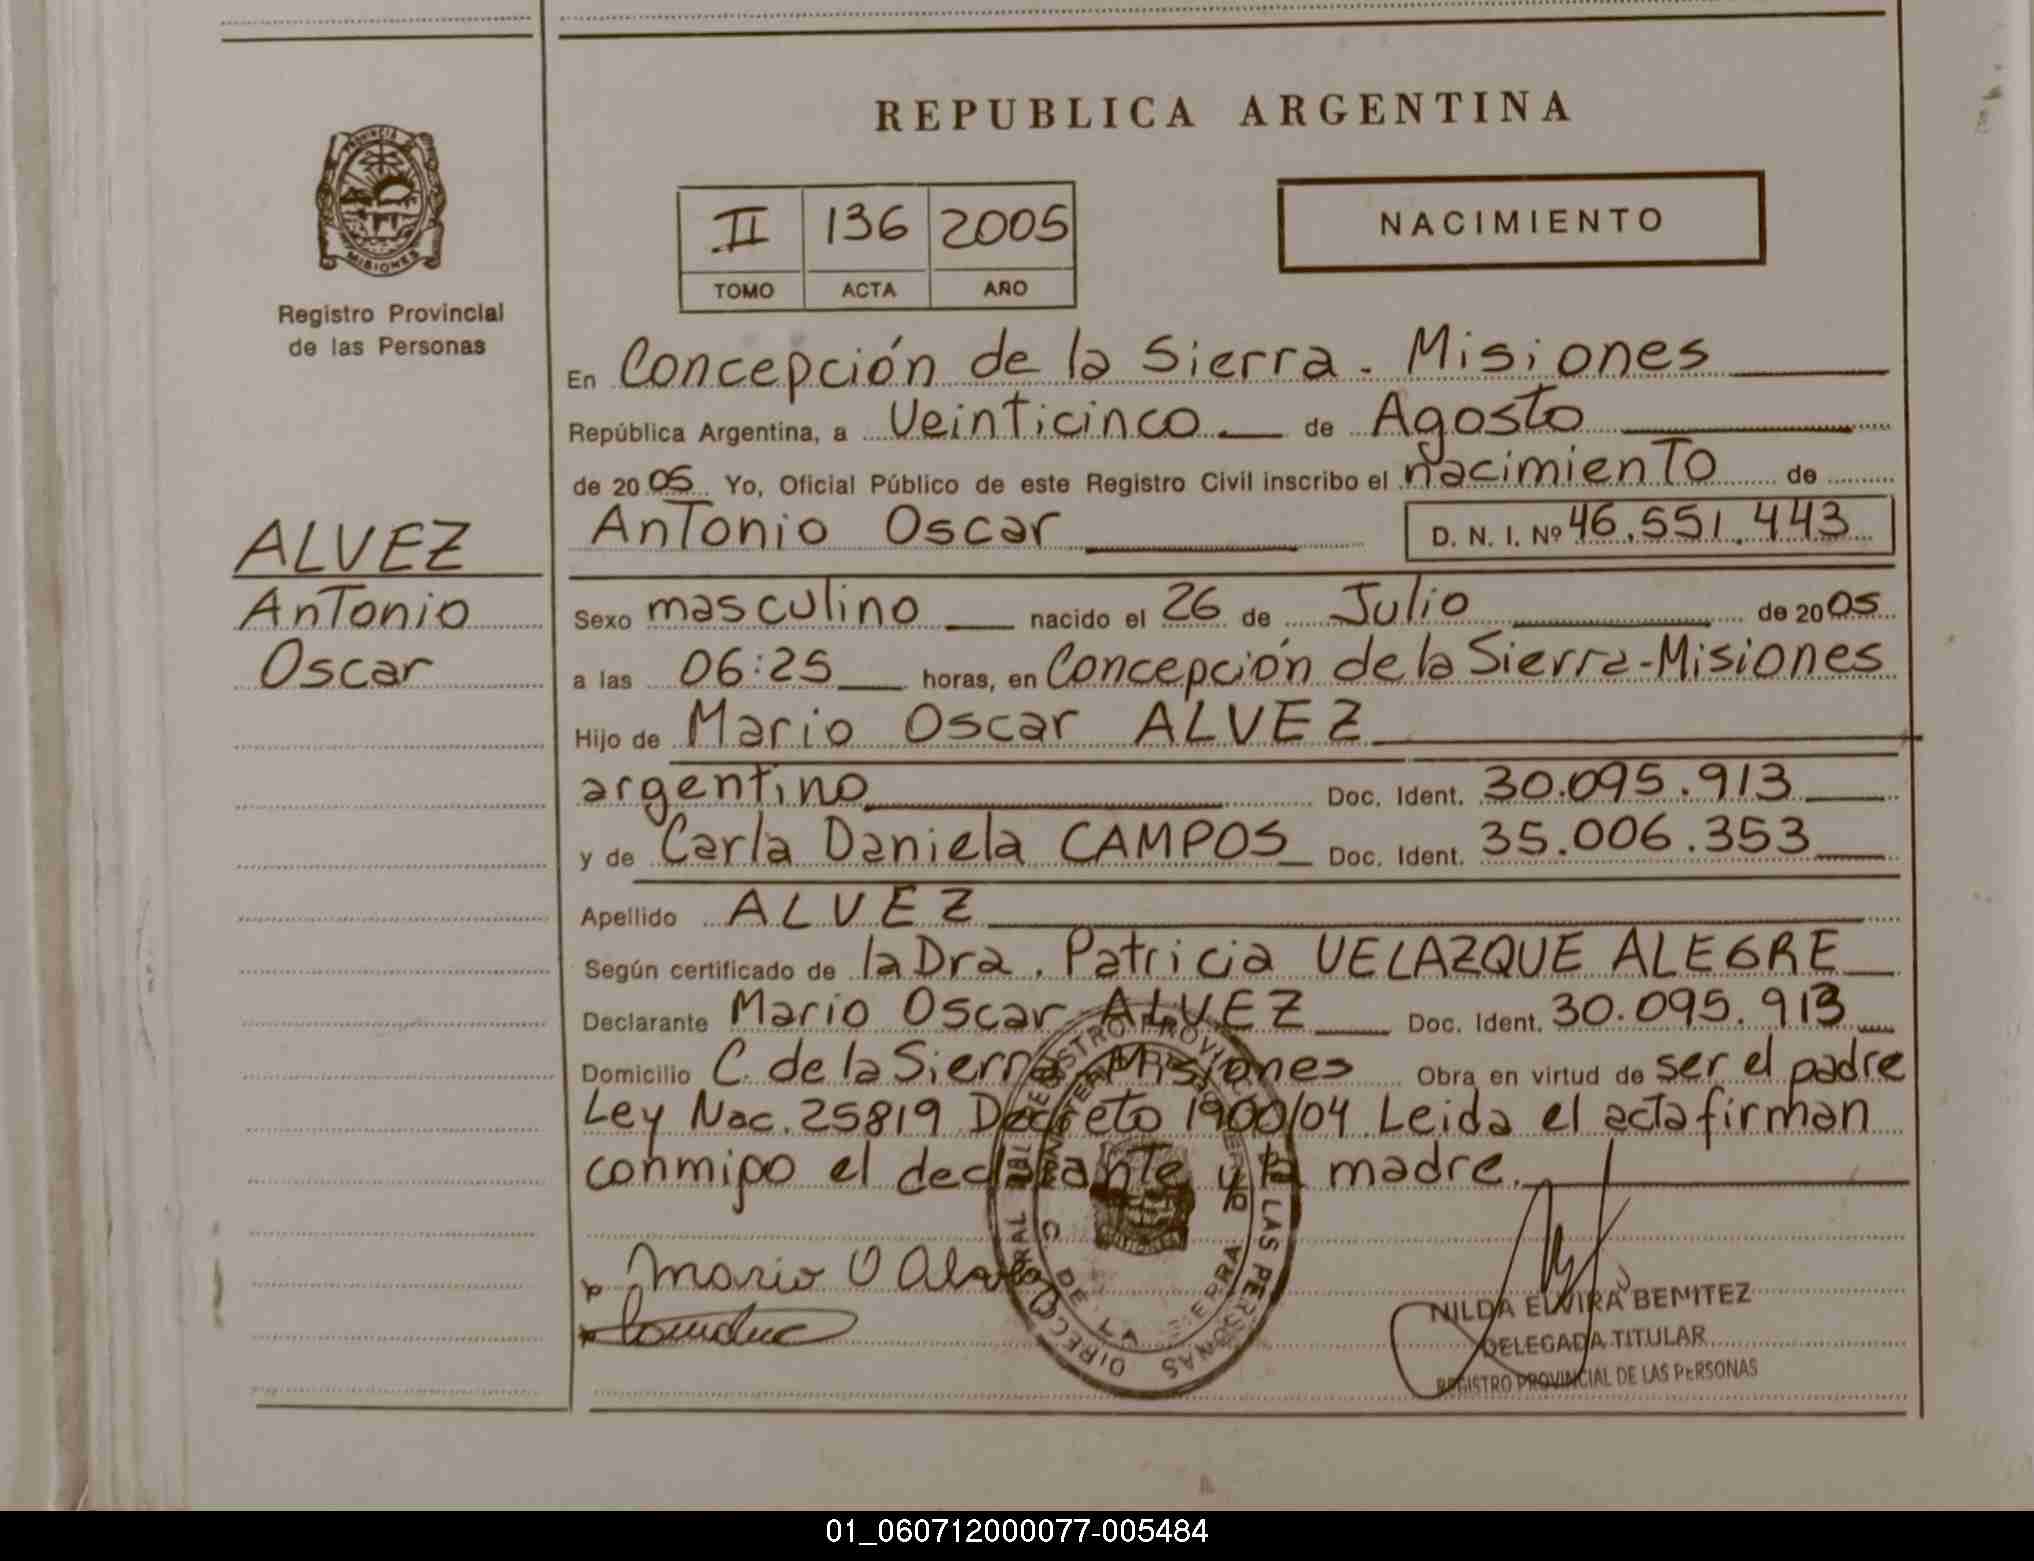 REPUBLICA ARGENTINA
PROVINCIA DE
MISIONES
Registro Provincial
de las Personas
II 136 2005
TOMO ACTA AÑO
NACIMIENTO
En Concepción de la Sierra. Misiones
República Argentina, a Veinticinco de Agosto
de 2005 Yo, Oficial Público de este Registro Civil inscribo el nacimiento de
Antonio Oscar D. N. I. Nº 46.551.443
ALVEZ
Antonio
Oscar
Sexo masculino nacido el 26 de Julio de 2005
a las 06:25 horas, en Concepción de la Sierra-Misiones
Hijo de Mario Oscar ALVEZ
argentino Doc. Ident. 30.095.913
y de Carla Daniela CAMPOS Doc. Ident. 35.006.353
Apellido ALVEZ
Según certificado de la Dra. Patricia VELAZQUE ALEGRE
Declarante Mario Oscar ALVEZ Doc. Ident. 30.095.913
Domicilio C. de la Sierra-Misiones Obra en virtud de ser el padre
Ley Nac. 25819 Decreto 1900/04 Leida el acta firman
conmigo el declarante y la madre.
Mario O Alvez
NILDA ELVIRA BENITEZ
DELEGADA TITULAR
REGISTRO PROVINCIAL DE LAS PERSONAS
01_060712000077-005484